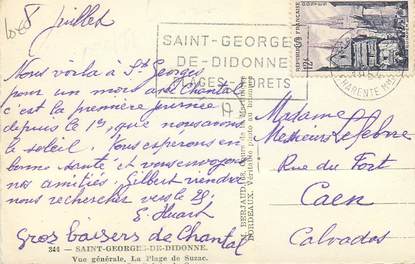 le 8 Juillet
Nous voilà à St Georges
pour un mois avec Chantal
c'est la première journée
depuis le 1er, que nous avons
le soleil. Nous espérons en
bonne santé et vous envoyons
nos amitiés, Gilbert viendra
nous rechercher vers le 28.
E. Huart
Gros baisers de Chantal
344 - SAINT-GEORGES-DE-DIDONNE.
Vue générale. La Plage de Suzac.
SAINT-GEORGES
DE-DIDONNE
PLAGES - FORETS
CHARENTE
BORDEAUX. Véritable photo au bromure
Madame
Messieurs Lefebvre
Rue du Fort
Caen
Calvados